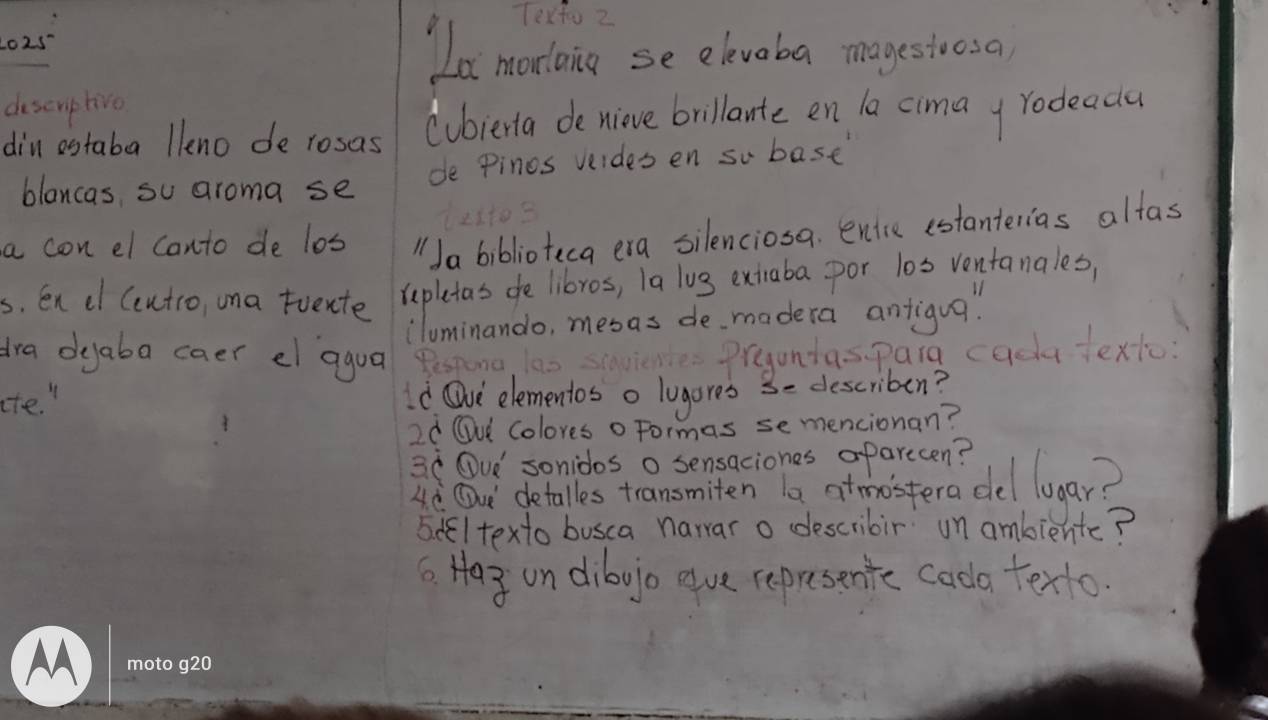 2025
descriptivo
din estaba lleno de rosas
blancas, su aroma se
a con el canto de los
s. En el Centro, una fuente
dra dejaba caer el agua
te."
Texto 2
"La montaña se elevaba magestuosa,
Cubierta de nieve brillante en la cima y rodeada
de Pinos verdes en su base"
Texto 3
"La biblioteca era silenciosa. entre estanterias altas
repletas de libros, la luz extraba por los ventanales,
iluminando. mesas de madera antigua".
Respona las siguientes Preguntas para cada texto:
1¿ Qué elementos o lugares se describen?
2¿ Qué Colores o Formas se mencionan?
3¿ Qué sonidos o sensaciones aparecen?
4.¿ Qué detalles transmiten la atmósfera del lugar?
5.¿El texto busca narrar o describir un ambiente?
6. Haz un dibujo que represente cada texto.
moto g20